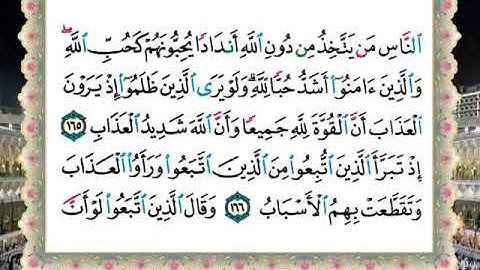 ٱلنَّاسِ مَن يَتَّخِذُ مِن دُونِ ٱللَّهِ أَندَادًا يُحِبُّونَهُمْ كَحُبِّ ٱللَّهِ ۖ
وَٱلَّذِينَ ءَامَنُوٓا۟ أَشَدُّ حُبًّا لِّلَّهِ ۗ وَلَوْ يَرَى ٱلَّذِينَ ظَلَمُوٓا۟ إِذْ يَرَوْنَ
ٱلْعَذَابَ أَنَّ ٱلْقُوَّةَ لِلَّهِ جَمِيعًا وَأَنَّ ٱللَّهَ شَدِيدُ ٱلْعَذَابِ ١٦٥
إِذْ تَبَرَّأَ ٱلَّذِينَ ٱتُّبِعُوا۟ مِنَ ٱلَّذِينَ ٱتَّبَعُوا۟ وَرَأَوُا۟ ٱلْعَذَابَ
وَتَقَطَّعَتْ بِهِمُ ٱلْأَسْبَابُ ١٦٦ وَقَالَ ٱلَّذِينَ ٱتَّبَعُوا۟ لَوْ أَنَّ